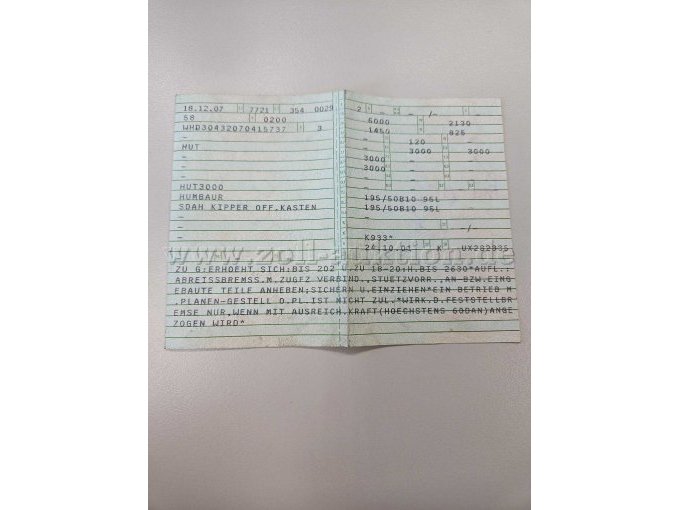 18.12.07 7721 354 0029
58 0200
WHD30432070415737 3
-
HUT
-
-
-
HUT3000
HUMBAUR
SDAH KIPPER OFF.KASTEN
-
-
-
2 - - /-
6000 - 2130
1450 825
- 120 -
- 3000 3000
3000 -
3000 - -
- - -
195/50B10 95L
195/50B10 95L
-
- -/-
K933*
24.10.01 K UX282935
www.zoll-auktion.de
ZU G:ERHOEHT SICH:BIS 202 U.ZU 18-20:H.BIS 2630*AUFL.:
ABREISSBREMSS.M.ZUGFZ VERBIND.,STUETZVORR.,AN-BZW.EING
EBAUTE TEILE ANHEBEN;SICHERN U.EINZIEHEN*EIN BETRIEB M
.PLANEN-GESTELL O.PL.IST NICHT ZUL.*WIRK.D.FESTSTELLBR
EMSE NUR,WENN MIT AUSREICH.KRAFT(HOECHSTENS 60DAN)ANGE
ZOGEN WIRD*